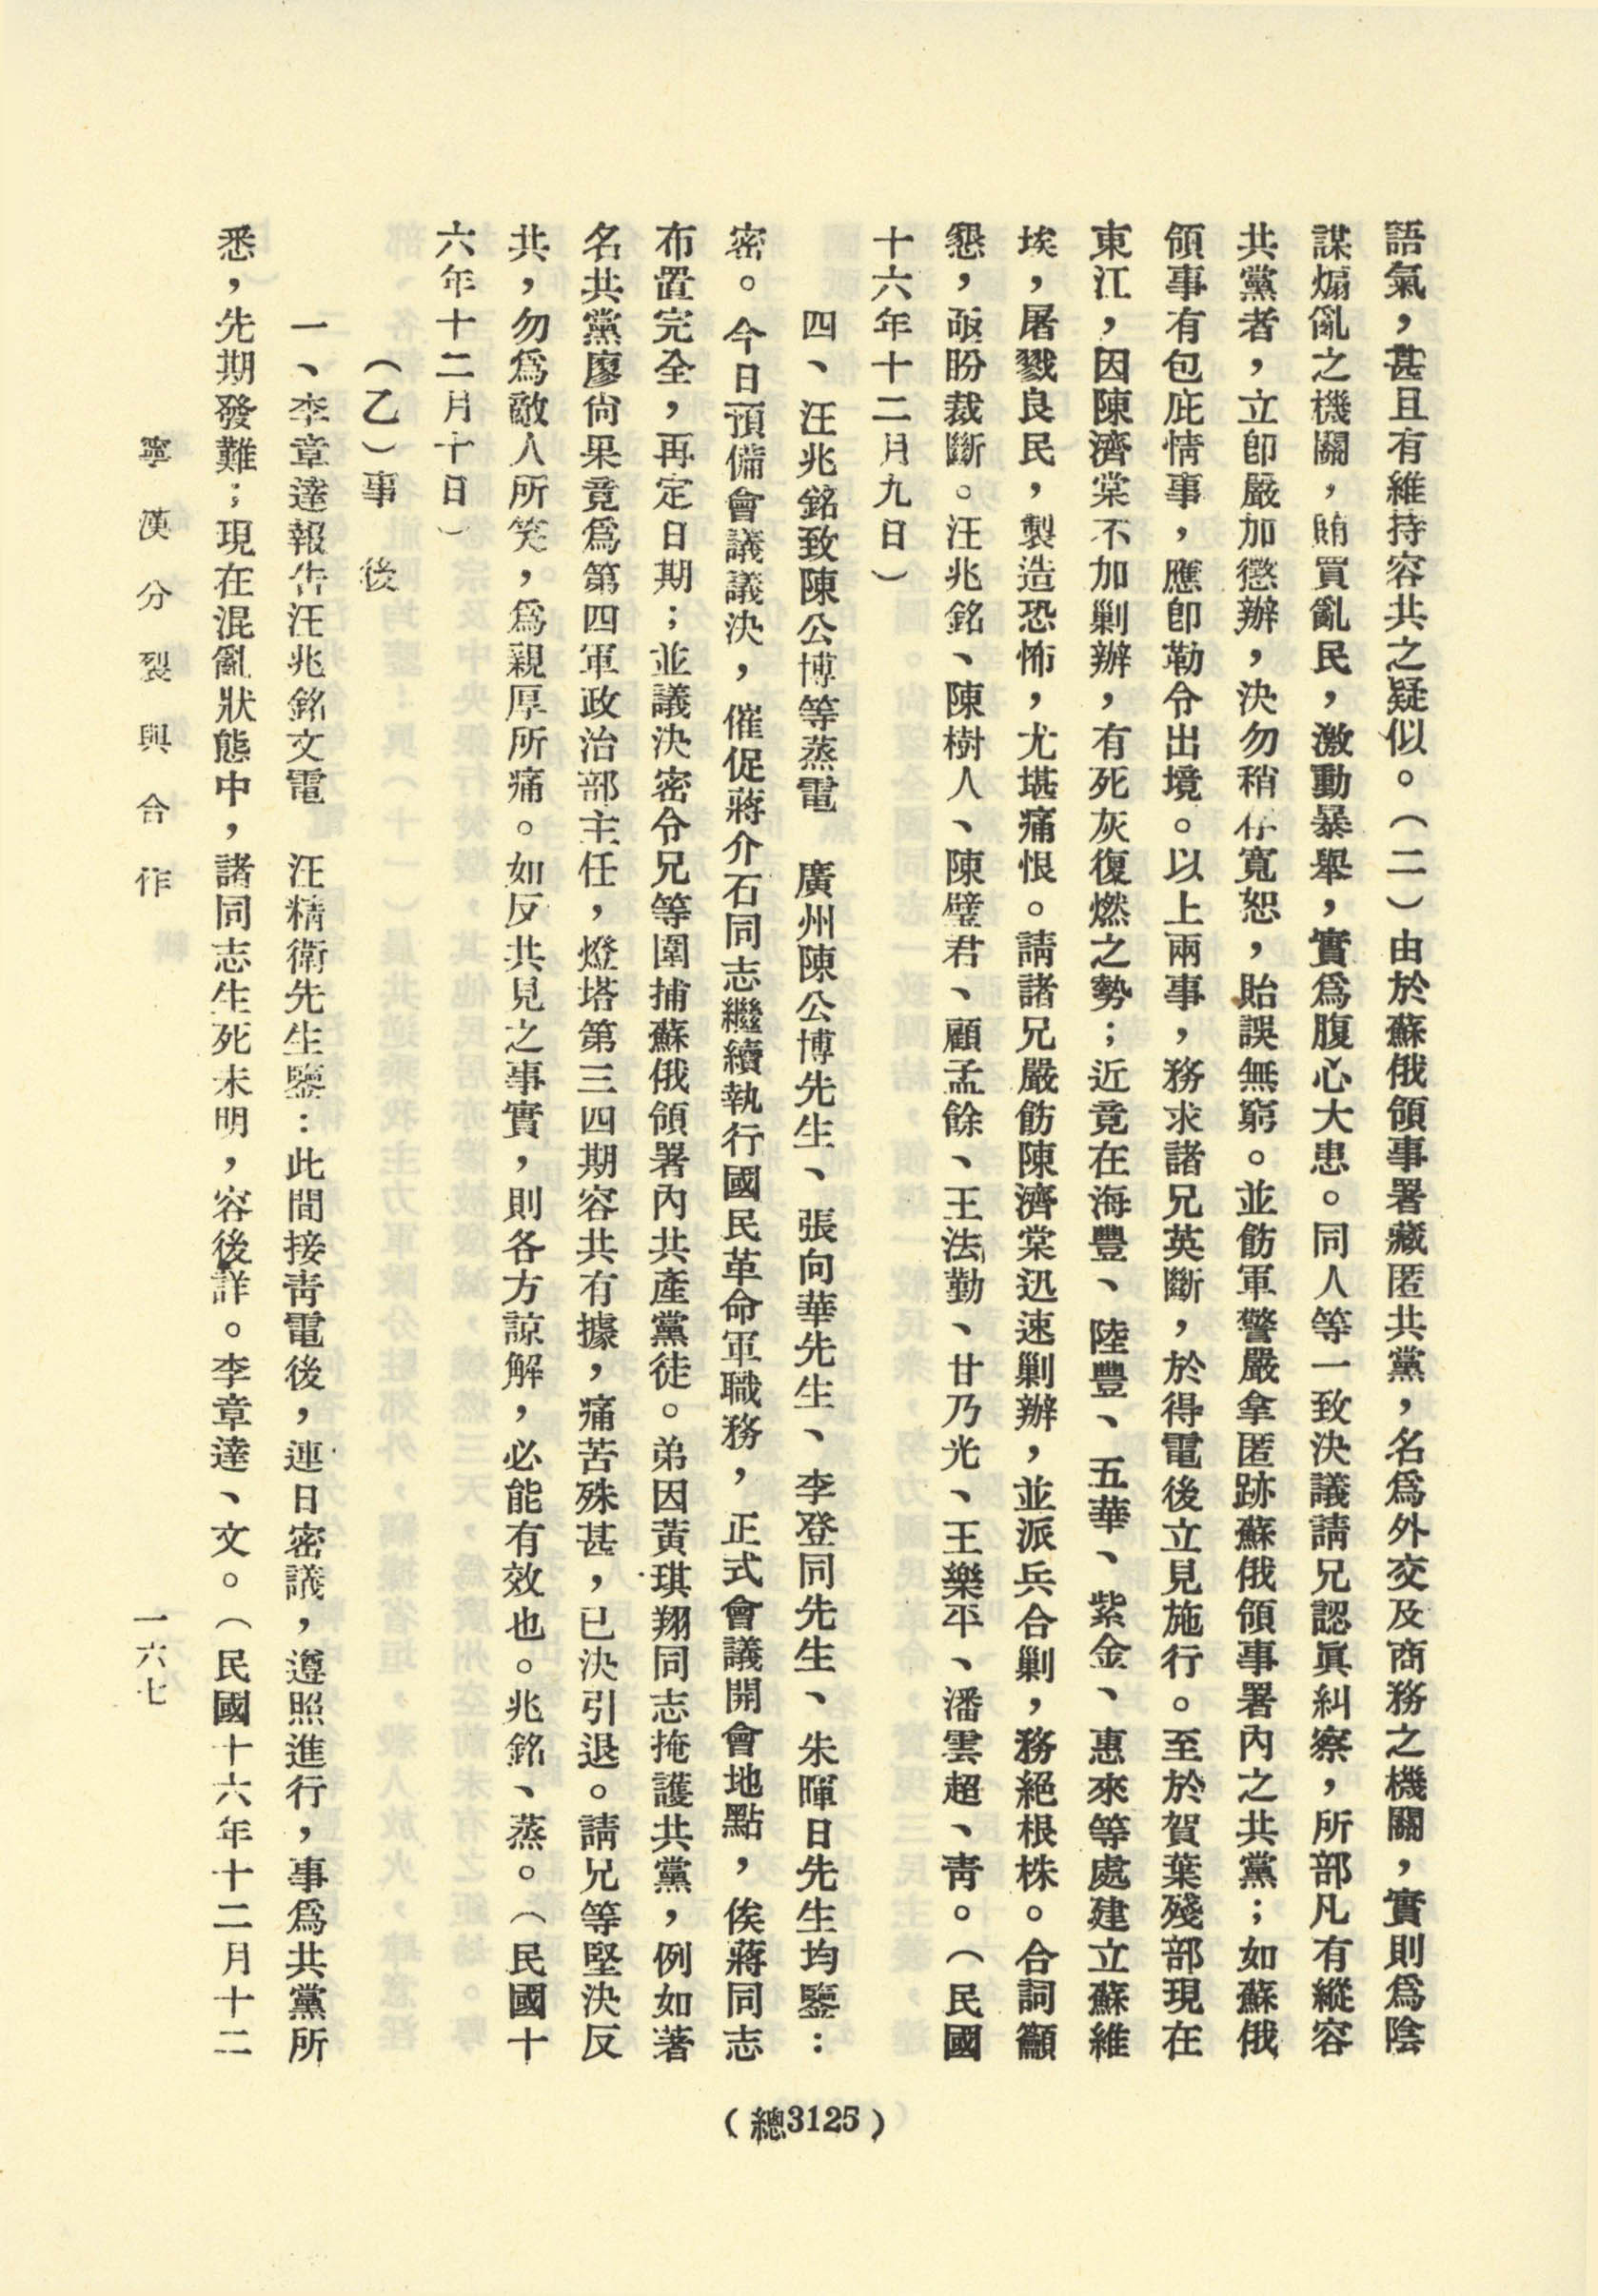 語氣，甚且有維持容共之疑似。（二）由於蘇俄領事署藏匿共黨，名爲外交及商務之機關，實則爲陰
謀煽亂之機關，賄買亂民，激動暴舉，實爲腹心大患。同人等一致決議請兄認眞糾察，所部凡有縱容
共黨者，立卽嚴加懲辦，決勿稍存寬恕，貽誤無窮。並飭軍警嚴拿匿跡蘇俄領事署內之共黨；如蘇俄
領事有包庇情事，應卽勒令出境。以上兩事，務求諸兄英斷，於得電後立見施行。至於賀葉殘部現在
東江，因陳濟棠不加剿辦，有死灰復燃之勢；近竟在海豐、陸豐、五華、紫金、惠來等處建立蘇維
埃，屠戮良民，製造恐怖，尤堪痛恨。請諸兄嚴飭陳濟棠迅速剿辦，並派兵合剿，務絕根株。合詞籲
懇，亟盼裁斷。汪兆銘、陳樹人、陳璧君、顧孟餘、王法勤、甘乃光、王樂平、潘雲超、靑。（民國
十六年十二月九日）
四、汪兆銘致陳公博等蒸電　廣州陳公博先生、張向華先生、李登同先生、朱暉日先生均鑒：
密。今日預備會議議決，催促蔣介石同志繼續執行國民革命軍職務，正式會議開會地點，俟蔣同志
布置完全，再定日期；並議決密令兄等圍捕蘇俄領署內共產黨徒。弟因黃琪翔同志掩護共黨，例如著
名共黨廖尙果竟爲第四軍政治部主任，燈塔第三四期容共有據，痛苦殊甚，已決引退。請兄等堅決反
共，勿爲敵人所笑，爲親厚所痛。如反共見之事實，則各方諒解，必能有效也。兆銘、蒸。（民國十
六年十二月十日）
（乙）事　後
一、李章達報告汪兆銘文電　汪精衛先生鑒：此間接靑電後，連日密議，遵照進行，事爲共黨所
悉，先期發難；現在混亂狀態中，諸同志生死未明，容後詳。李章達、文。（民國十六年十二月十二
寧漢分裂與合作
一六七
（總3125）